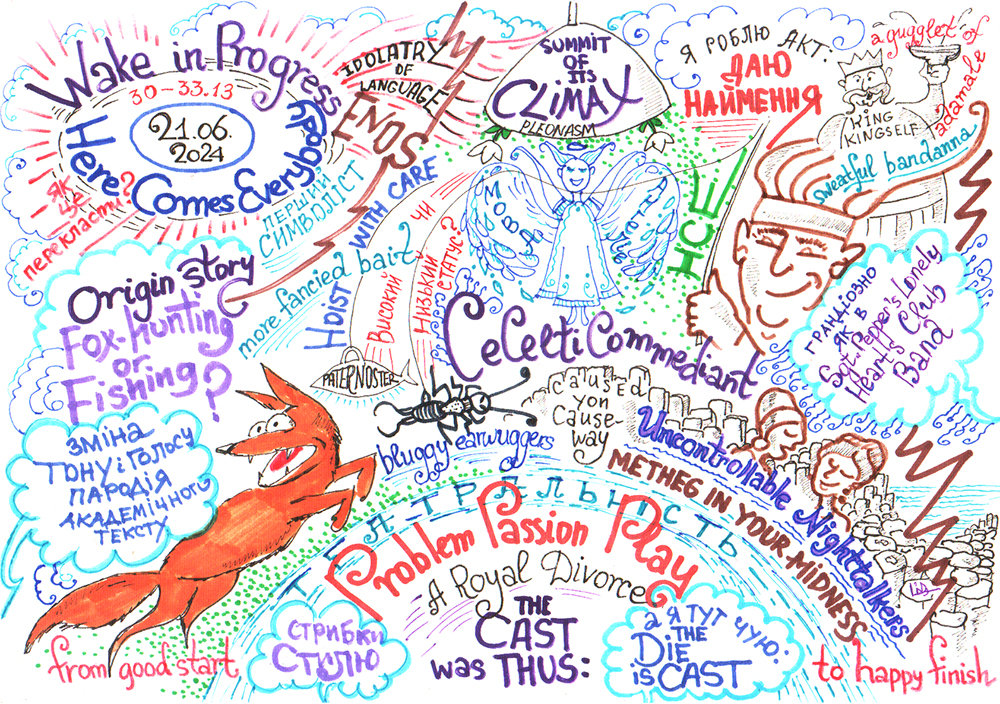 Wake in Progress
30-33.13
21.06.
2024
Here Comes Everybody
- ЯК
ЦЕ
перекласти?
IDOLATRY
OF
LANGUAGE
ENOS
ПЕРШИЙ
СИМВОЛІСТ
HOIST WITH CARE
more fancied bait?
ВИСОКИЙ
ЧИ
НИЗЬКИЙ
СТАТУС?
SUMMIT
OF
ITS
CLIMAX
PLEONASM
Я РОБЛЮ АКТ:
ДАЮ
НАЙМЕННЯ
a gugglet of
adamale
KING
KINGSELF
sweatful bandanna
Origin story
Fox-hunting
or
Fishing?
PATERNOSTER
CeCelticommediant
ГРАНДІОЗНО
ЯК В
Sgt. Pepper's Lonely
Heart's Club
Band
ЗМІНА
ТОНУ і ГОЛОСУ
ПАРОДІЯ
АКАДЕМІЧНОГО
ТЕКСТУ
bluggy earwuggers
CaUSED
yon
Cause-
way
Uncontrollable Nighttalkers
METHEG IN YOUR MIDNESS
ТЕАТРАЛЬНІСТЬ
Problem Passion Play
A Royal Divorce
THE
CAST
was THUS:
СТРИБКИ
СТИЛЮ
а я ТУТ ЧУЮ:
THE
DiE
iS CAST
from good start
to happy finish